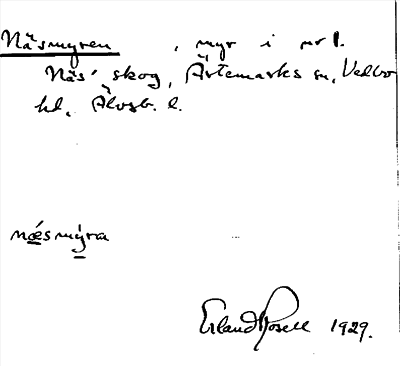 Näsmyren , myr i nr 1.
Näs' skog, Ärtemarks sn, Vedbo
hd, Älvsb. l.
næsmýra
Erland Rosell 1929.